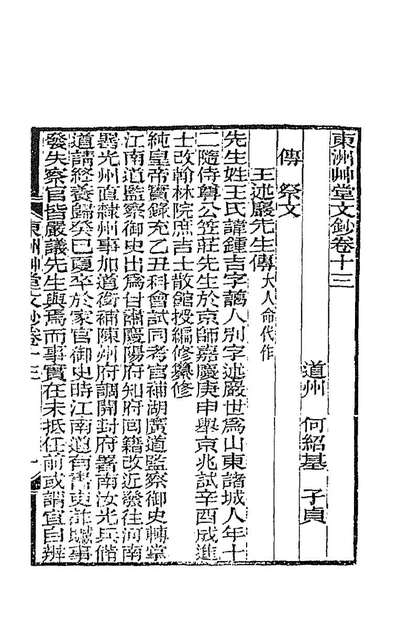 東洲艸堂文鈔卷十三
道州 何紹基 子貞
傳 祭文
王述巖先生傳大人命代作
先生姓王氏諱鍾吉字藹人別字述巖世爲山東諸城人年十
二隨侍尊公笠莊先生於京師嘉慶庚申舉京兆試辛酉成進
士改翰林院庶吉士散館授編修纂修
純皇帝實錄充乙丑科會試同考官補湖廣道監察御史轉掌
江南道監察御史出爲甘肅慶陽府知府回籍改近發往河南
器光州直隸州事加道銜補陳州府調開封府署南汝光兵備
道請終養歸癸巳夏卒於家官御史時江南道有書吏
發失察官皆嚴議先生與焉而事實在未抵任前或謂宜自辨
東洲艸堂文鈔卷十三
一